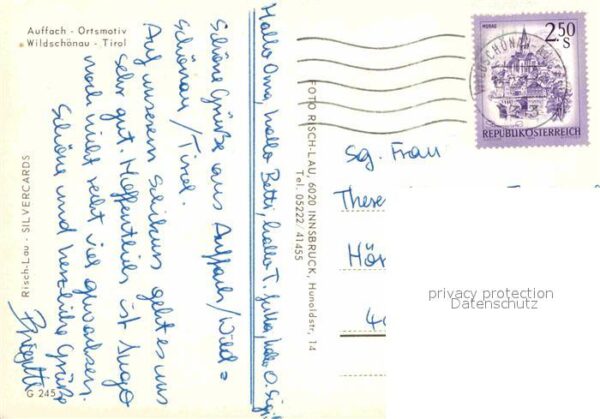 Auffach - Ortsmotiv
Wildschönau - Tirol
Hallo Oma, hallo Betti, hallo T. Julla, hallo O. Sigi!
Schöne Grüße aus Auffach/Wild=
schönau/Tirol.
Auf unserem Schikurs geht es uns
sehr gut. Hoffentlich ist
noch nicht recht viel gewachsen.
Schöne und herzliche Grüße
Brigitte
Risch-Lau - SILVERCARDS
G 245
FOTO RISCH-LAU, 6020 INNSBRUCK, Hunoldstr. 14
Tel. 05222/41455
MURAU
2.50
S
REPUBLIK ÖSTERREICH
WILDSCHÖNAU-AUFFACH
Sg. Frau
There
Hör
40
privacy protection
Datenschutz